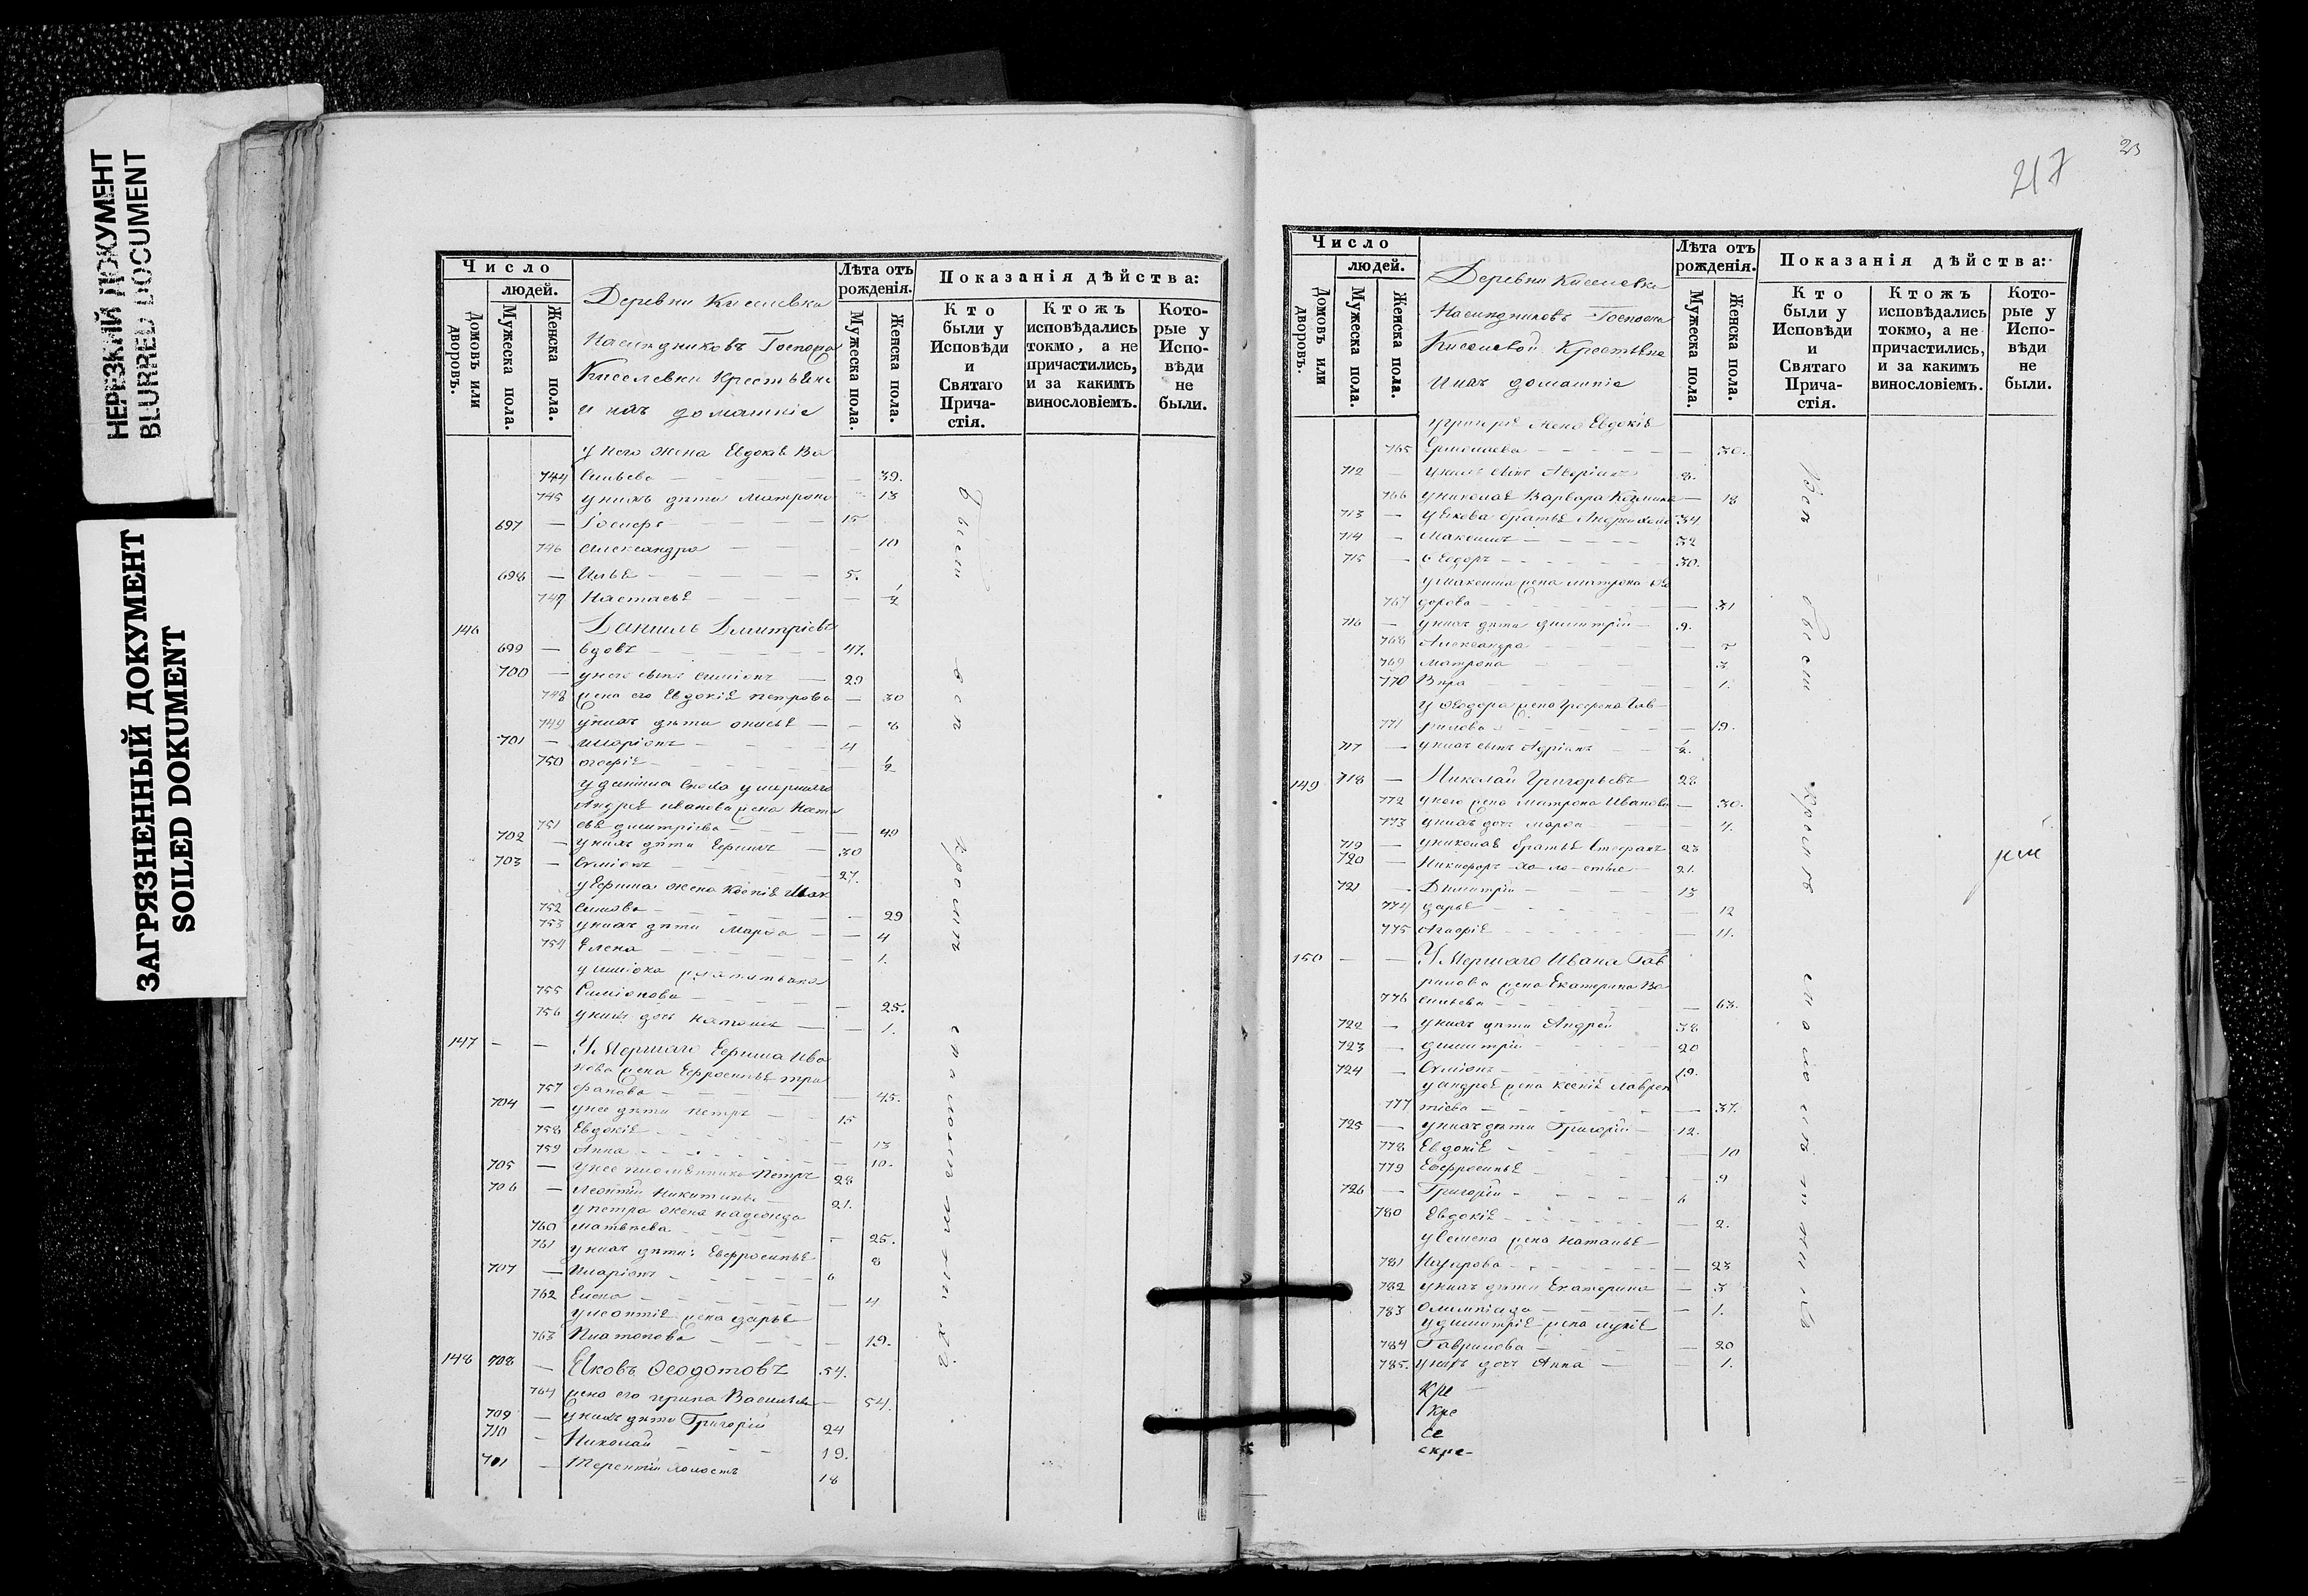 НЕРЕЗКИЙ ДОКУМЕНТ
BLURRED DOCUMENT
ЗАГРЯЗНЕННЫЙ ДОКУМЕНТ
SOILED DOKUMENT
Число
людей.
Домовъ или дворовъ.
Мужеска пола.
Женска пола.
Деревни Киселевка
Наслѣдниковъ Госпожа
Киселевки Крестьяне
и ихъ домашніе
Лѣта отъ рожденія.
Мужеска пола.
Женска пола.
Показанія дѣйства:
Кто были у Исповѣди и Святаго Прича-стія.
Ктожъ исповѣдались токмо, а не причастились, и за какимъ винословіемъ.
Кото-рые у Испо-вѣди не были.
у него жена Евдокія Ва
744 сильева 39.
745 у нихъ дѣти Матрона 13
697 Іосифъ 15
746 Александра 10
698 Илья 5.
747 Настасья ½
146 Даніилъ Дмитріевъ
699 вдовъ 47.
700 у него сынъ Симіонъ 29
748 жена его Евдокія Петрова 30
749 у нихъ дѣти 8
701 Иларіонъ 4
750 ½
Андрея Иванова жена Ната
751 лья Дмитріева 49
702 у нихъ дѣти 30
703 Симіонъ 27.
752 симова 29
753 у нихъ дѣти Марѳа 4
754 Елена 1.
755 Симіонова 25.
756 у нихъ дочь Наталія 1.
147 Умершаго Ива
нова жена Евфросинья Три
757 фанова 45.
704 у нее дѣти Петръ 15
758 Евдокія 13
759 Анна 10.
705 у нее племянники Петръ 28
706 Леонтій Никитины 21.
у Петра жена Надежда
760 Матвѣева 25.
761 у нихъ дѣти: Евфросинья 8
707 Иларіонъ 6
762 Елена 4
у Леонтія жена Дарья
763 Платонова 19.
148 708 Яковъ Ѳеодотовъ 54.
764 жена его Ирина Васильева 54.
709 у нихъ дѣти Григорій 24
710 Николай 19.
711 Терентій холостъ 18
Были
вси
крестьяне
217
23
Число
людей.
Домовъ или дворовъ.
Мужеска пола.
Женска пола.
Деревни Киселевка
Наслѣдниковъ Госпожа
Киселевой Крестьяне
и ихъ домашніе
Лѣта отъ рожденія.
Мужеска пола.
Женска пола.
Показанія дѣйства:
Кто были у Исповѣди и Святаго Прича-стія.
Ктожъ исповѣдались токмо, а не причастились, и за какимъ винословіемъ.
Кото-рые у Испо-вѣди не были.
у Григорія жена Евдокія
765 Ермолаева 30.
712 у нихъ сынъ 8.
766 у Николая Варвара Козмина 18
713 у Якова братья Андрей 34
714 Максимъ 32
715 Ѳеодоръ 30.
у Максима жена Матрона Ѳео
767 дорова 31
716 у нихъ дѣти Димитрій 9.
768 Александра 5
769 Матрона 3
770 Вѣра 1.
771 рилова 19.
717 у нихъ сынъ Адріанъ ½.
149 718 Николай Григорьевъ 28
772 у него жена Матрона Иванова 30.
773 у нихъ дочь Марѳа 4.
719 у Николая братья Стефанъ 23
720 Никифоръ холостые 21.
721 Димитрій 13
774 Дарья 12
775 Агафія 11.
150 Умершаго Ивана Гав
рилова жена Екатерина Ва
776 сильева 63.
722 у нихъ дѣти Андрей 38
723 Димитрій 20
724 Симіонъ 19.
у Андрея жена Ксенія Лаврен
777 тіева 37.
725 у нихъ дѣти Григорій 12.
778 Евдокія 10
779 Евфросинья 9
726 Григорій 6
780 Евдокія 2.
у Семена жена Наталья
781 23
782 у нихъ дѣти Екатерина 3
783 Олимпіада 1.
у Димитрія жена
784 Гаврилова 20
785. у нихъ дочь Анна 1.
Кре
Кре
Се
Вси
были